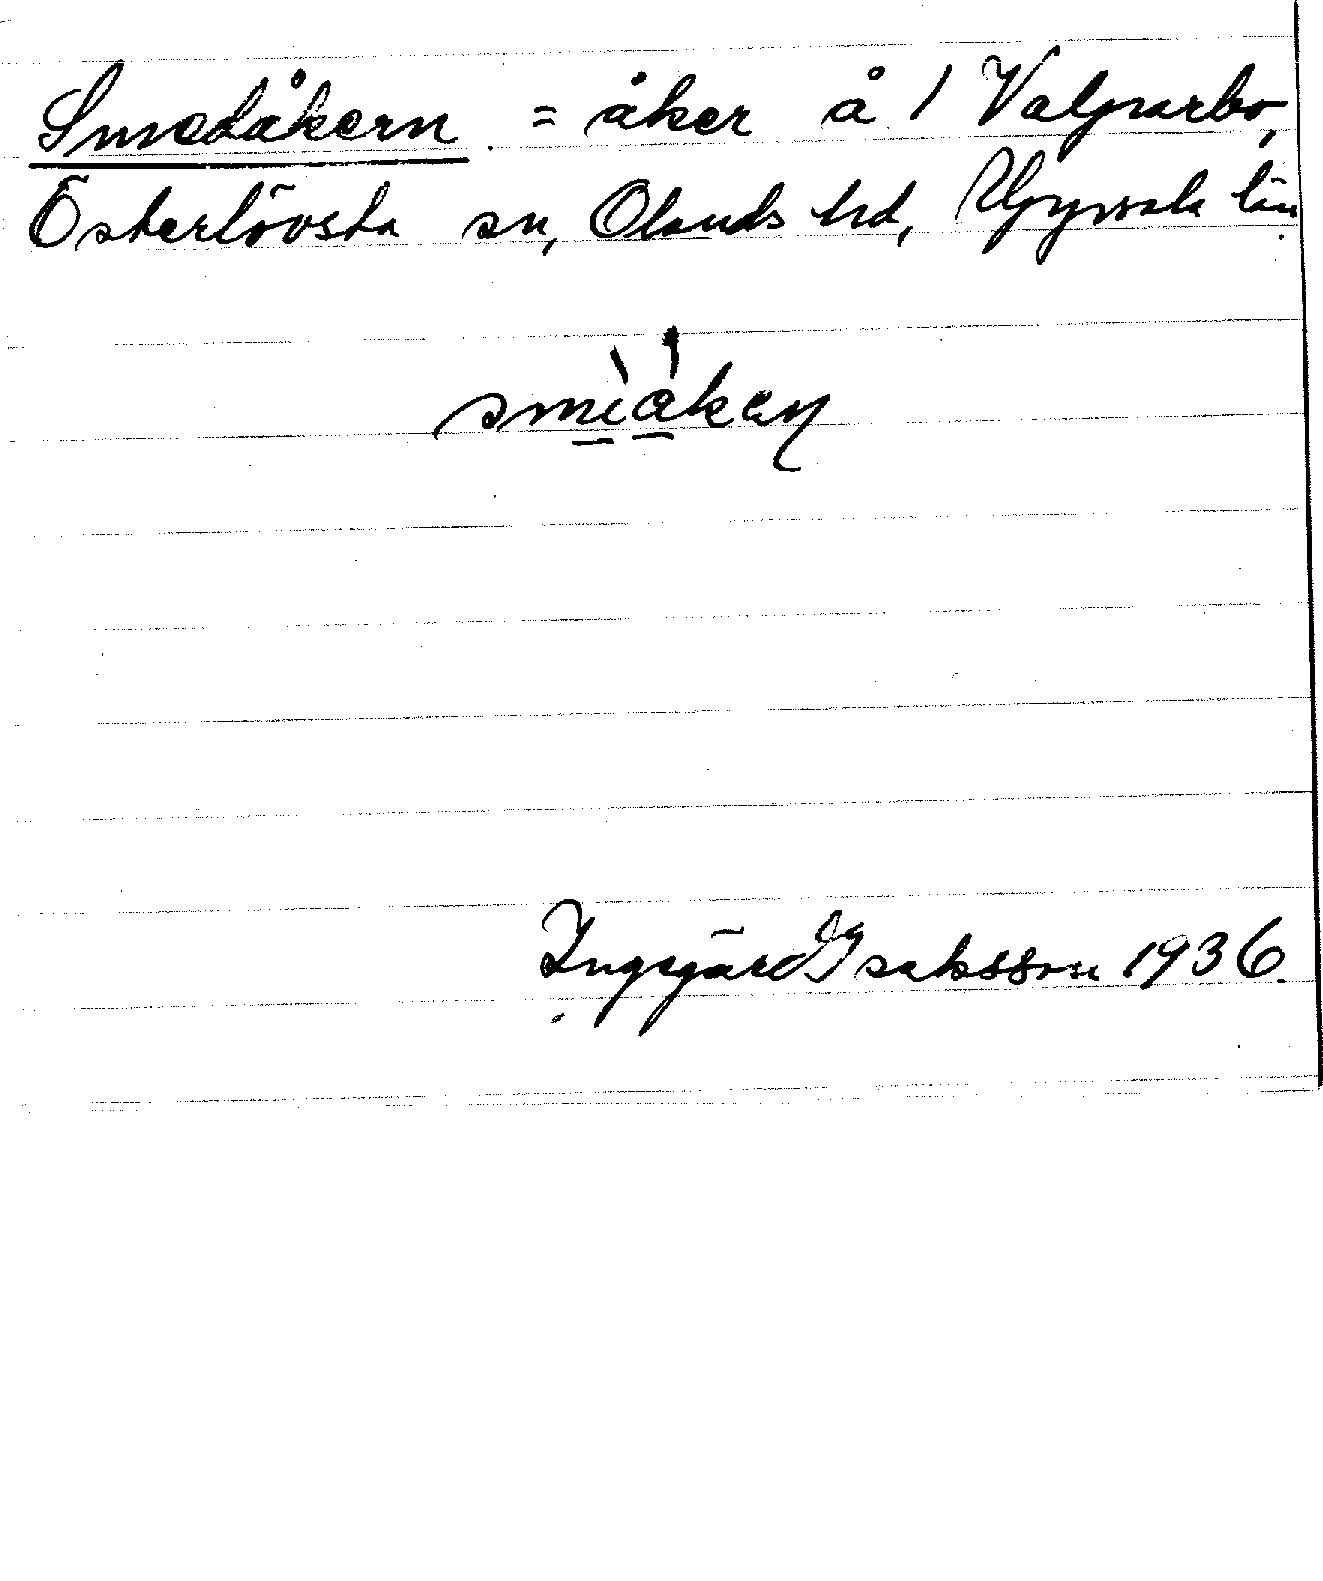 Smedåkern = åker å 1 Valparbo,
Österlövsta sn, Olands hd, Uppsala län.
smìákeņ
Inggärd Isaksson 1936.